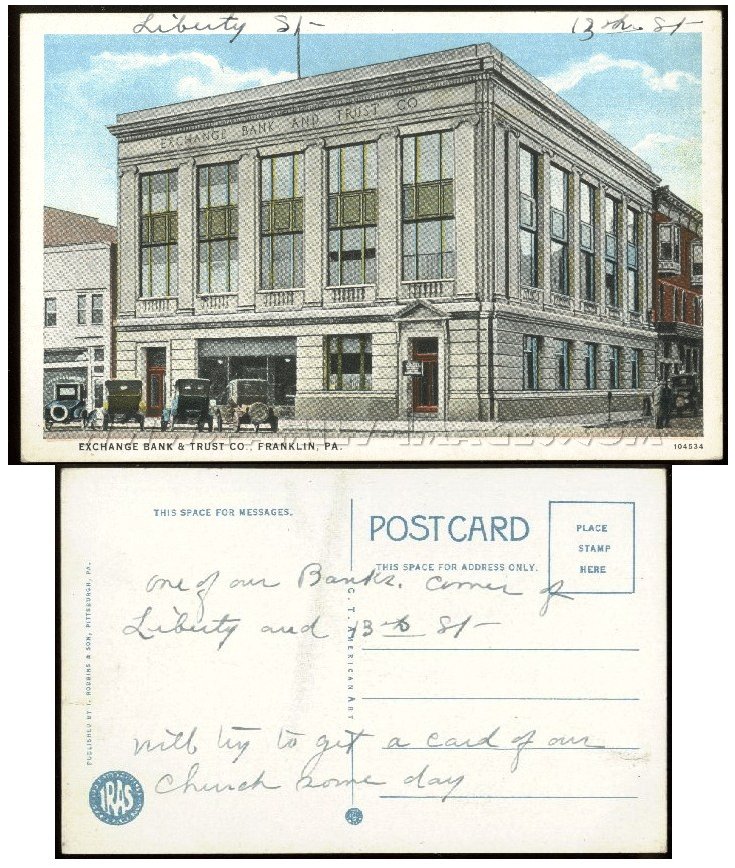 Liberty St- 13th St-
EXCHANGE BANK AND TRUST CO
EXCHANGE BANK & TRUST CO., FRANKLIN, PA. 104534
THIS SPACE FOR MESSAGES.
POST CARD
THIS SPACE FOR ADDRESS ONLY.
PLACE
STAMP
HERE
one of our Banks. corner of
Liberty and 13th St-
will try to get a card of our
church some day
C. T. AMERICAN ART
PUBLISHED BY I. ROBBINS & SON, PITTSBURGH, PA.
IRAS